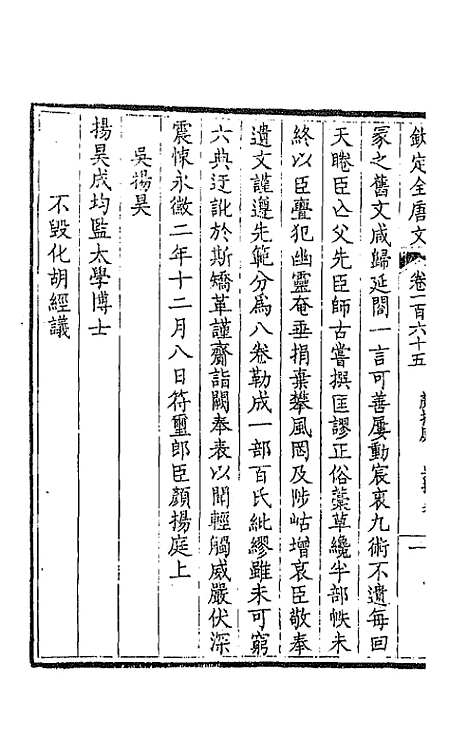 欽定全唐文 卷一百六十五 顏揚庭 吳揚昊 一
冢之舊文咸歸延閣一言可善屢動宸衷九術不遺每回
天睠臣亡父先臣師古嘗撰匡謬正俗藁草纔半部帙未
終以臣釁犯幽靈奄垂捐棄攀風罔及陟岵增哀臣敬奉
遺文謹遵先範分為八卷勒成一部百氏紕繆雖未可窮
六典迂訛於斯矯革謹齋詣闕奉表以聞輕觸威嚴伏深
震悚永徽二年十二月八日符璽郎臣顏揚庭上
吳揚昊
揚昊成均監太學博士
不毀化胡經議